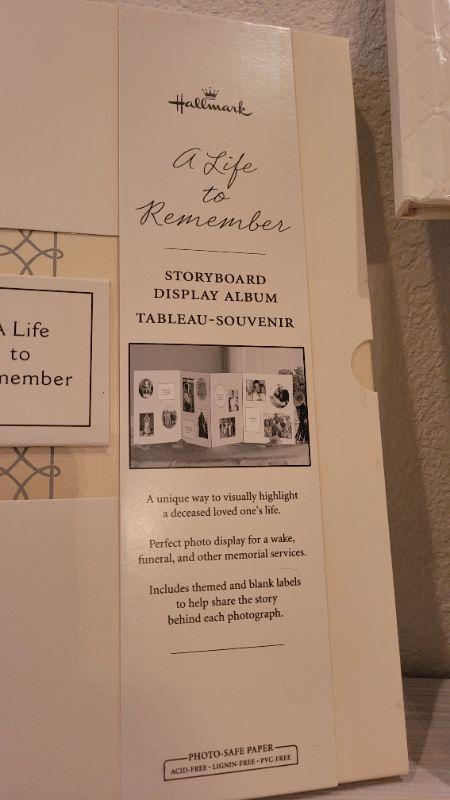 Hallmark
A Life
to
Remember
STORYBOARD
DISPLAY ALBUM
TABLEAU-SOUVENIR
A Life
to
member
A unique way to visually highlight
a deceased loved one's life.
Perfect photo display for a wake,
funeral, and other memorial services.
Includes themed and blank labels
to help share the story
behind each photograph.
PHOTO-SAFE PAPER
ACID-FREE • LIGNIN-FREE • PVC-FREE